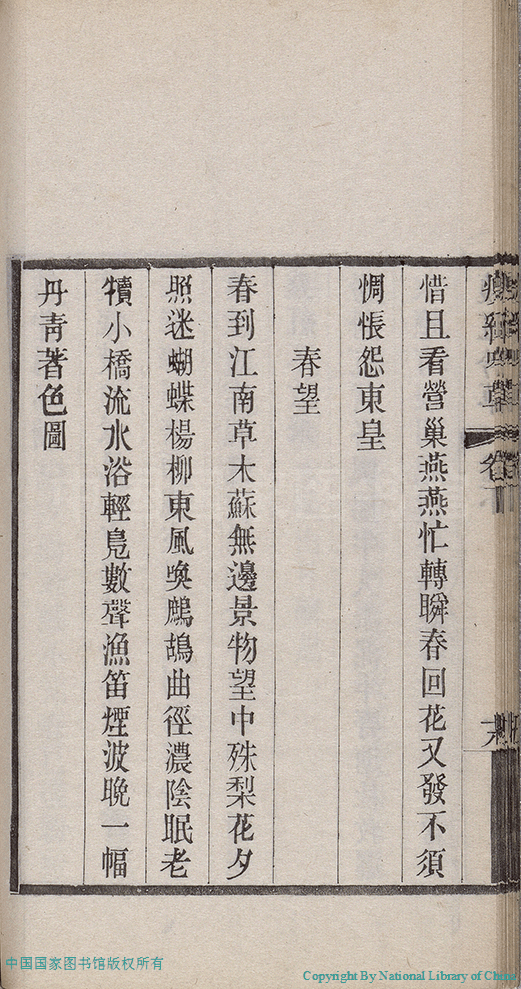 惜且看營巢燕燕忙轉瞬春回花又發不須
惆悵怨東皇
春望
春到江南草木蘇無邊景物望中殊梨花夕
照迷蝴蝶楊柳東風喚鷓鴣曲徑濃陰眠老
犢小橋流水浴輕鳧數聲漁笛煙波晚一幅
丹青著色圖
中国国家图书馆版权所有
Copyright By National Library of China